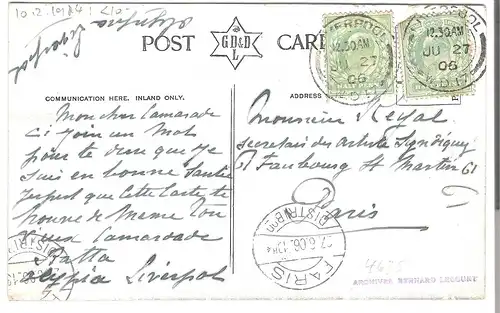 10.2.1984: £10
Liverpool
Olympia
POST CARD
GD&D
L
LIVERPOOL
12.30AM
JU 27
06
LIVERPOOL
12.30AM
JU 27
06
COMMUNICATION HERE. INLAND ONLY.
ADDRESS
Mon cher Camarade
ci join un Mot
pour te dire que je
suis en bonne Santée
j'espert que Cette Carte te
trouve de Meme Ton
Vieux Camarade
Batta
olympia Liverpol
Monsieur
secretair des artiste Syndiquy
61 Faubourg St Martin 61
Paris
PARIS
DISTRIBON
ARCHIVES BERNARD LECOURT